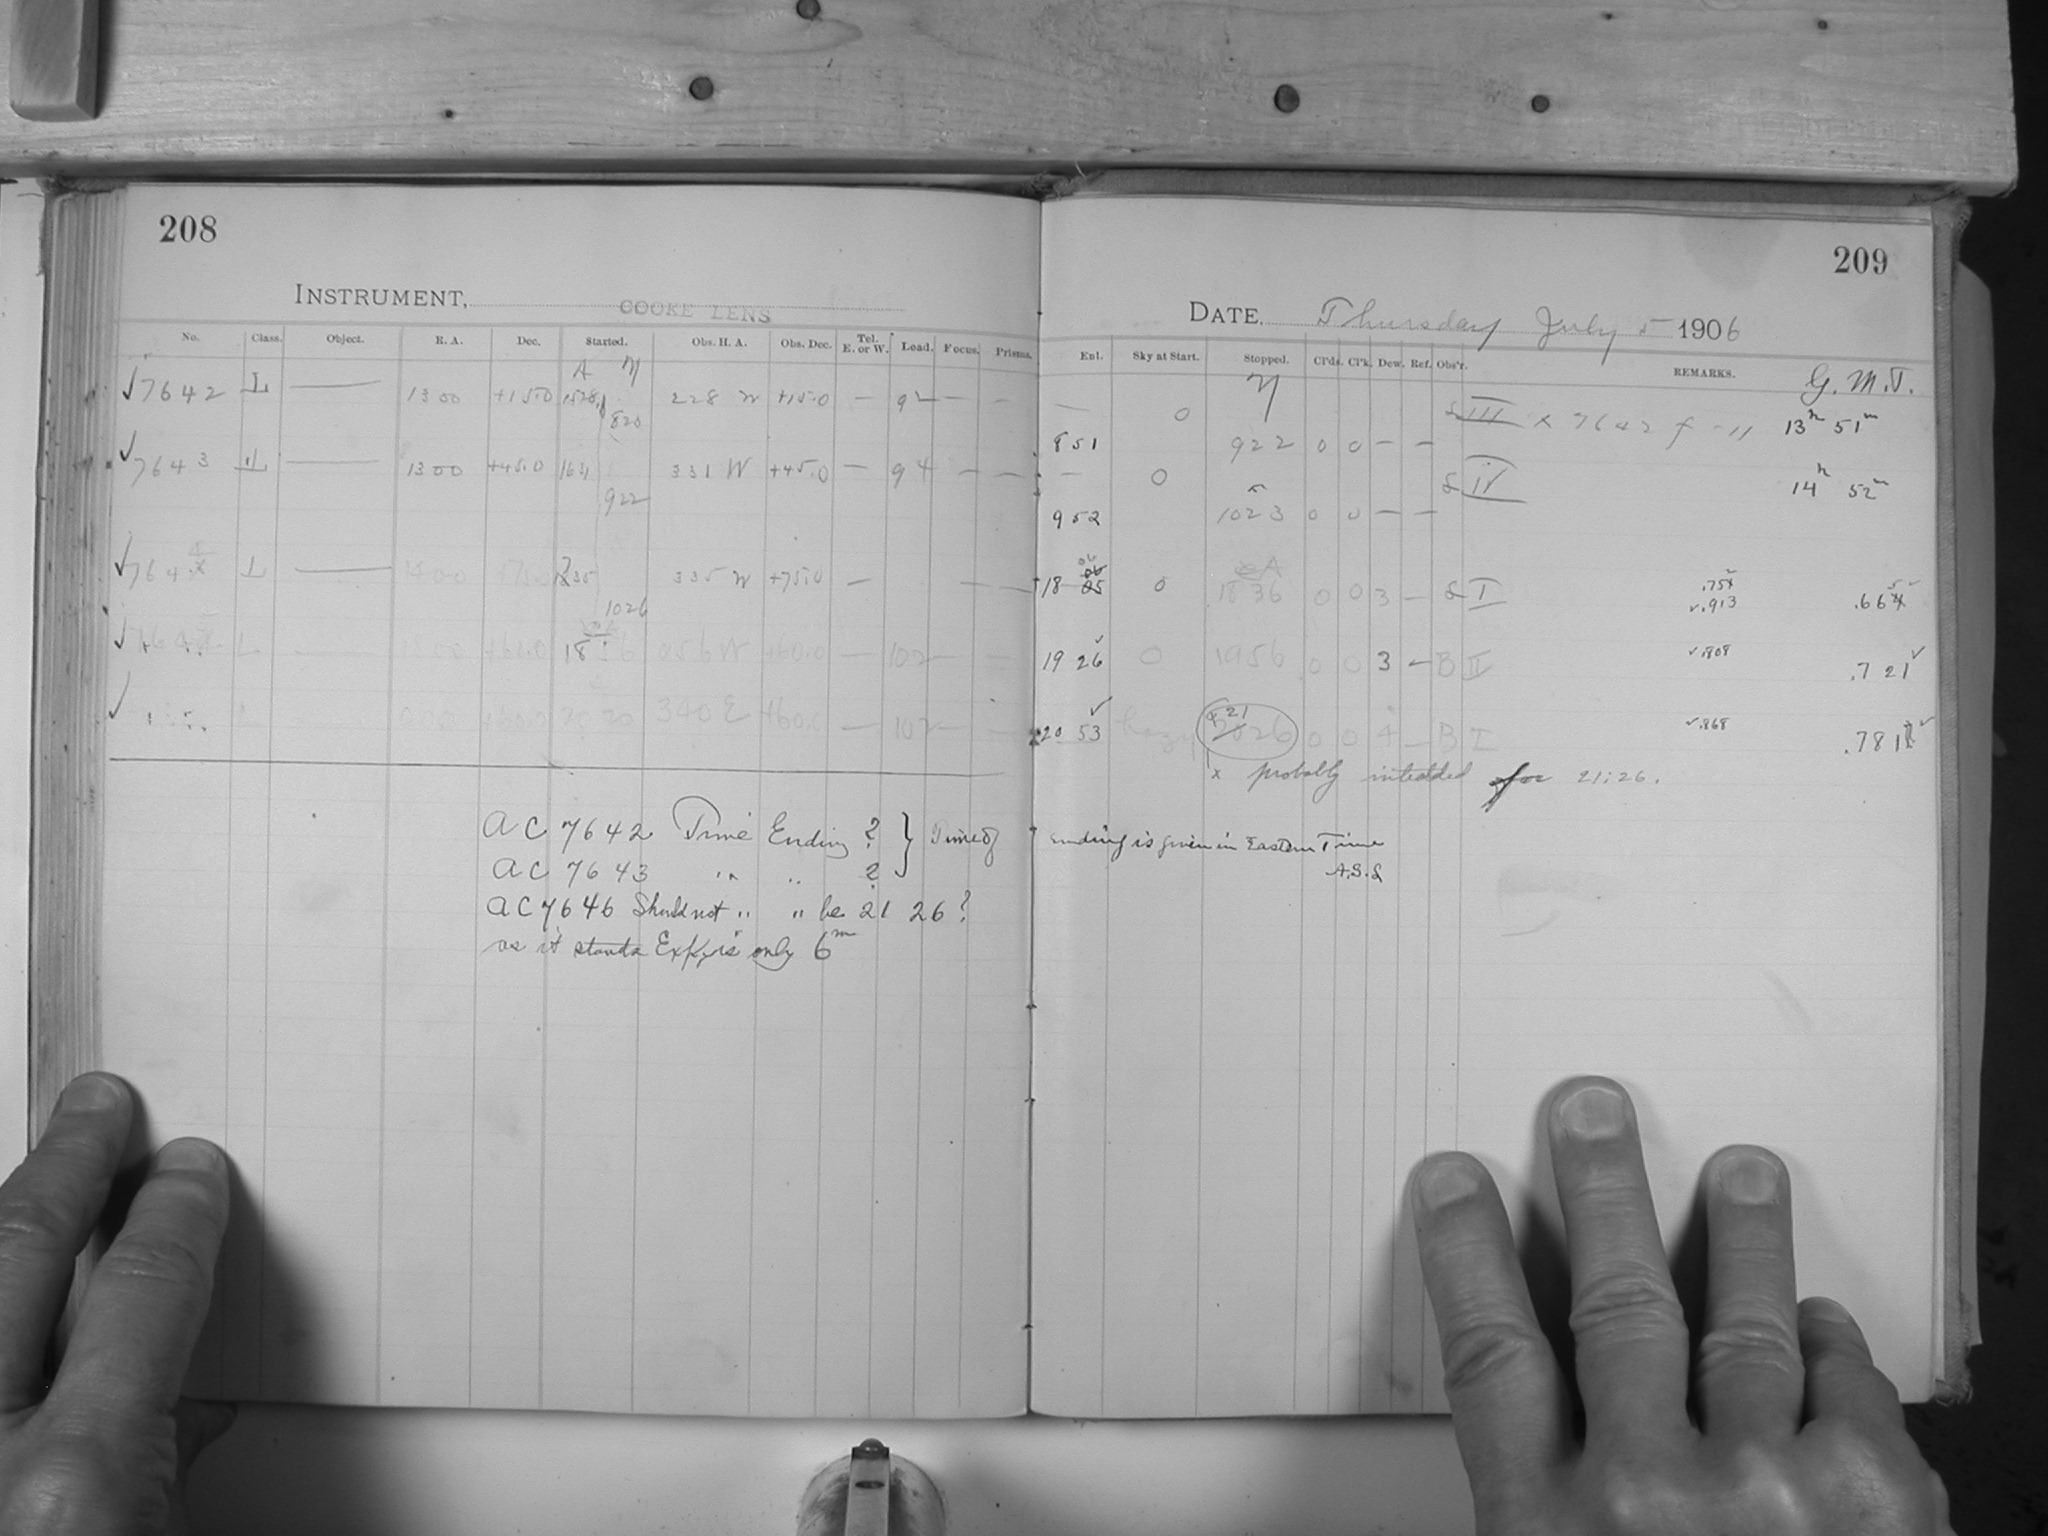 208
INSTRUMENT, COOKE LENS
No. Class. Object. R. A. Dec. Started. Obs. H. A. Obs. Dec. Tel. E. or W. Load. Focus. Prisms.
7642 L — 1300 +15.0 1528 820 228 W +15.0 — 92 — —
7643 L — 1300 +45.0 1631 922 331 W +45.0 — 94 — —
764 L — 335 W +75.0 —
1026
L — +60.0 18 056 W +60.0 — 102 — —
— 20 20 340 E +60.0 — 102 — —
AC 7642 Time Ending ? } Time of
AC 7643 " " ?
AC 7646 Should not " " be 21 26 ?
as it stands Exp. is only 6m
209
DATE. Thursday July 5 1906
Enl. Sky at Start. Stopped. Cl'ds. Cl'k. Dew. Ref. Obs'r. REMARKS. G. M. T.
— 0 III x 7642 13h 51m
851 922 0 0 — —
— 0 IV 14h 52m
952 1023 0 0 — —
18 0 1836 0 0 3 — I .913 .66
19 26 0 1956 0 0 3 — B II .808 .721
20 53 hazy 21 2026 0 0 4 — B I .868 .781
x probably intended for 21:26.
ending is given in Eastern Time
A.S.L